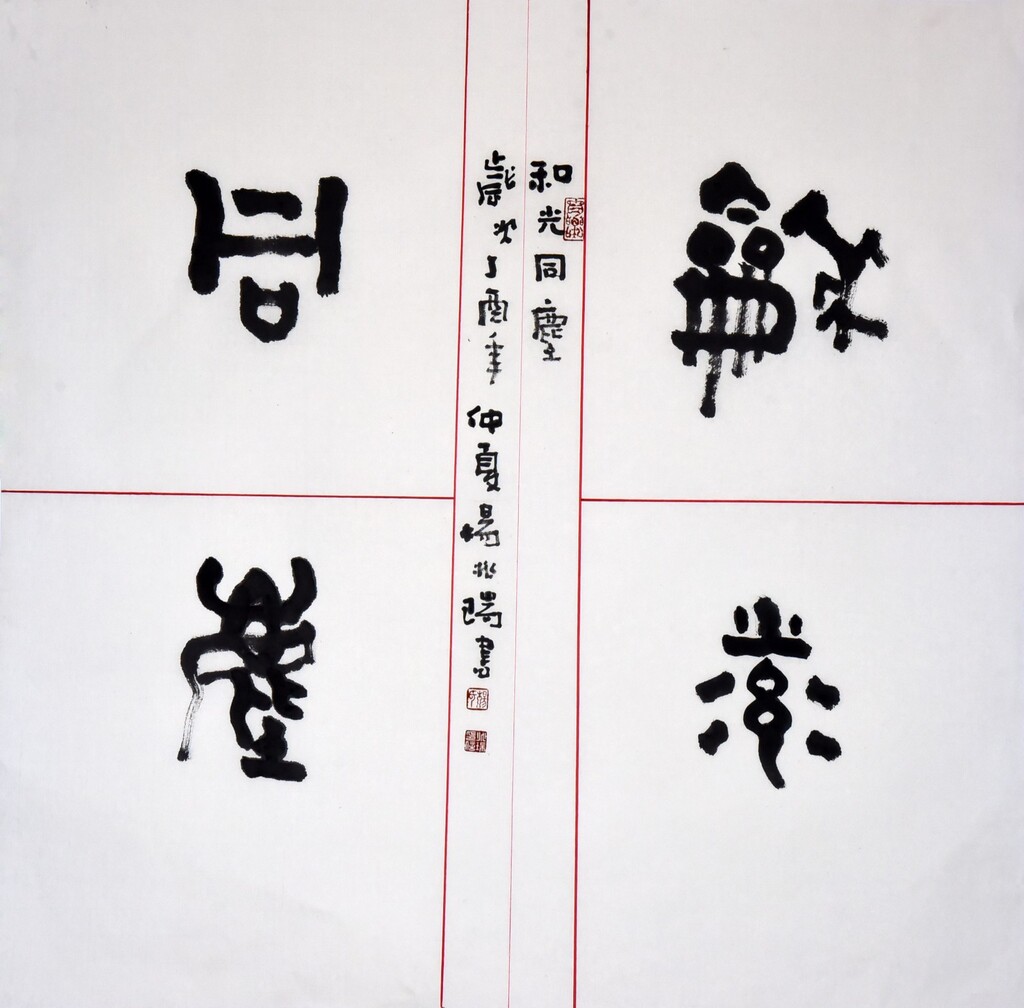 龢光
同塵
和光同塵
歲次丁酉年仲夏楊兆書